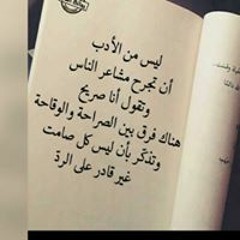 ليس من الأدب
أن تجرح مشاعر الناس
وتقول أنا صريح
هناك فرق بين الصراحة والوقاحة
وتذكّر بأن ليس كل صامت
غير قادر على الردّ